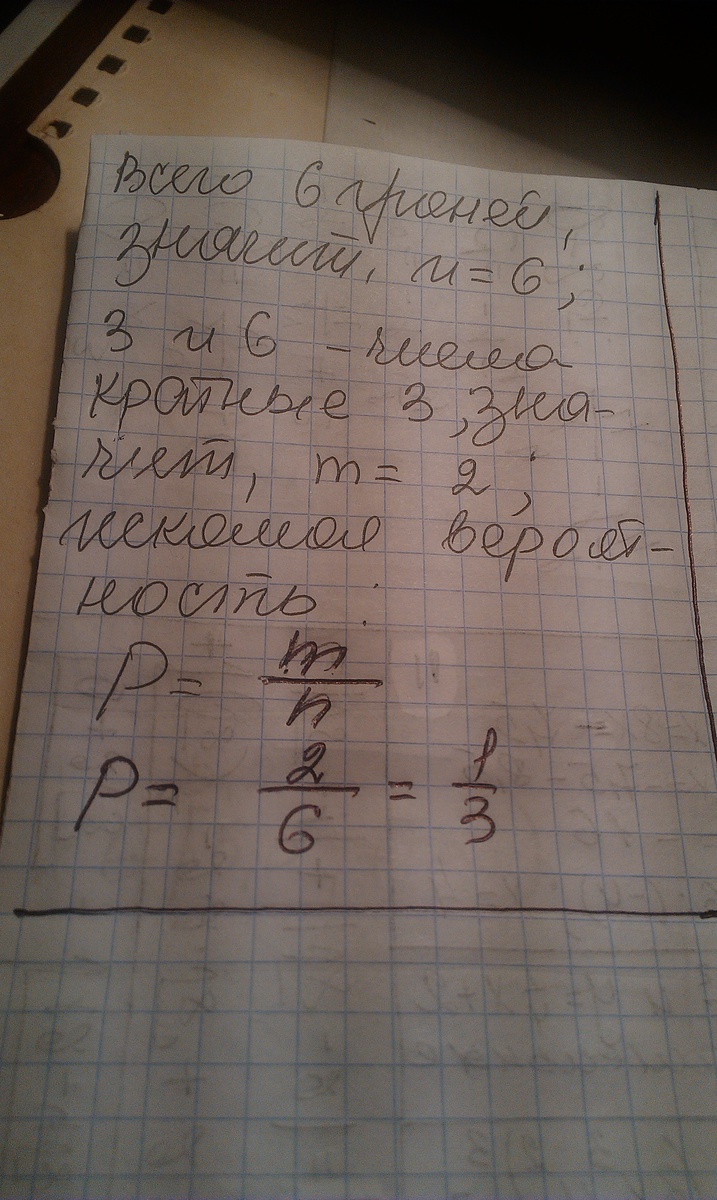 всего 6 граней,
значит, n = 6;
3 и 6 – числа
кратные 3, зна-
чит, m = 2;
искомая вероят-
ность:
P = m/n
P = 2/6 = 1/3